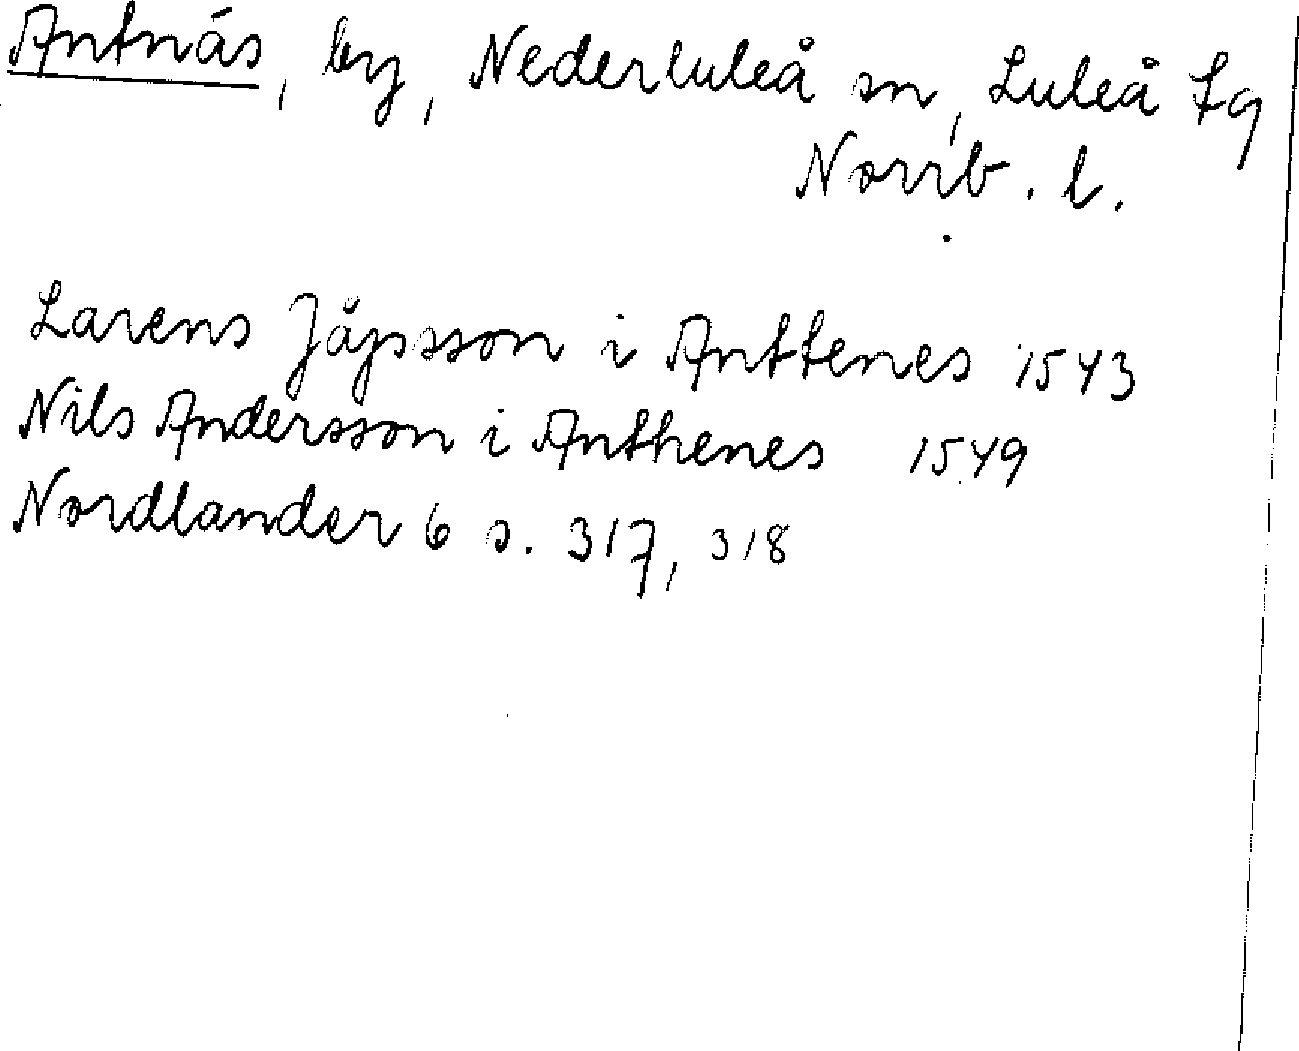 Antnäs, by, Nederluleå sn, Luleå tg
Norrb. l.
Larens Jåpsson i Anttenes 1543
Nils Andersson i Anthenes 1549
Nordlander 6 s. 317, 318